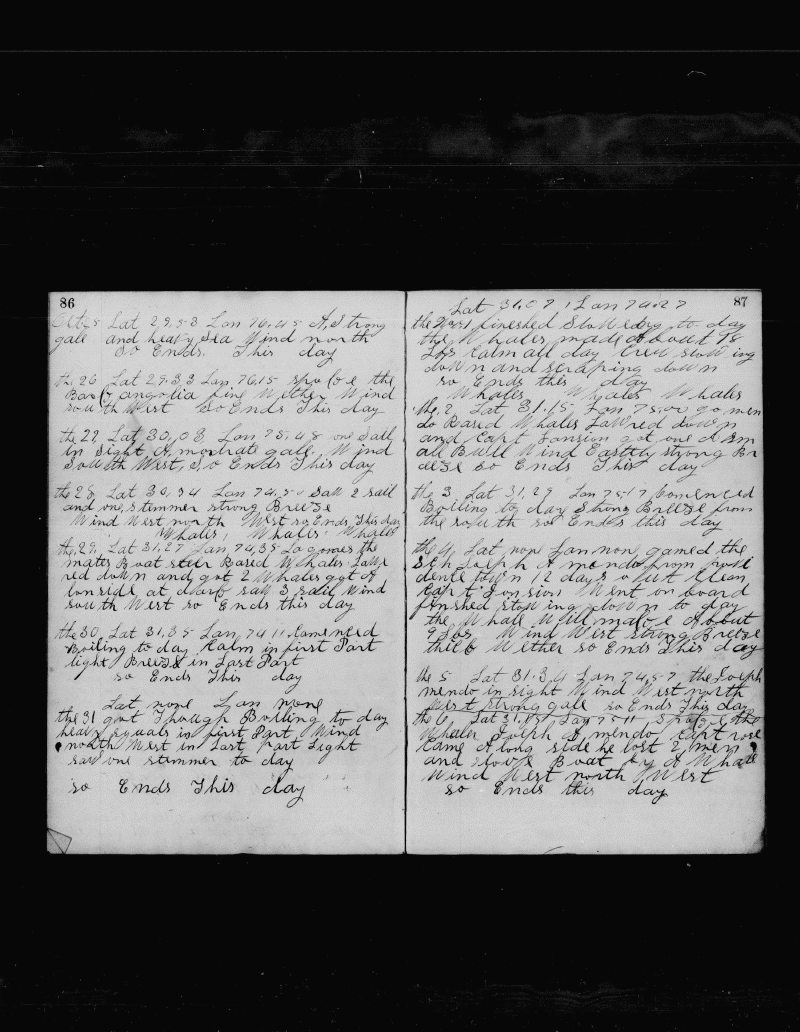 86
Oct 25 Lat 29,53 Lon 76,45 A, Strong
gale and heavy Sea Wind north
So Ends. This day
the 26 Lat 29,33 Lon, 76,15 spoke the
Bark fine Wether Wind
south West So Ends This day
the 27, Lat 30,03, Lon 75,48 one Sail
in sight A, modrate gale, Wind
South West, So Ends This day
the 28, Lat 30,54 Lon 74,50 Saw 2 sail
and one, stemmer strong Breeze
Wind West north West so Ends, This day
Whales, Whales Whales
the 29, Lat 31,27 Lon 74,35 the
mates Boat steer Rased Whales Law
red down and got 2 Whales got A
lonside, at dark saw 3 sail Wind
south West so Ends this day
the 30, Lat 31,35 Lon, 74 11 Comenced
Boiling to day Calm in first Part
light Breeze in Last Part
so Ends This day
Lat none Lon none
the 31 got Though Boiling to day
heavy squals in first Part Wind
north West in Last Part Light
saw one stemmer to day
so Ends This day
87
Lat 31,07, Lon 74,27
the fineshed Stowedng to day
the Whales made about 78
Lbs Calm all day Crew stowing
down and scraping down
so Ends this day
Whales Whales Whales
the 2, Lat 31,15, Lon 75,00 gomen
do Rased Whales Lawred down
and Capt Jonsion got one A Sm
all Bull Wind Easttly strong Br
eeze so Ends This day
the 3 Lat 31,29 Lon 75 17 Comenced
Boiling to day Strong Breeze from
the south so Ends this day
the 4, Lat none Lon non, gamed the
Sch Joseph A mendo from provi
dence town 12 days out Clean
Capt Jonsion Went on board
finshed stowing down to day
the Whall Will make About
9 Lbs Wind West strong Breeze
thick Wether so Ends This day
the 5 Lat 31,34 Lon 74,57, the Joseph
mendo in sight Wind West north
West strong gale so Ends This day
the 6, Lat 31,15, Lon 75 11, Spoke the
Whaler Joseph A mendo, Capt rose
Came A long side he lost 2 men
and stove Boat by A Whale
Wind West north West
so Ends this day